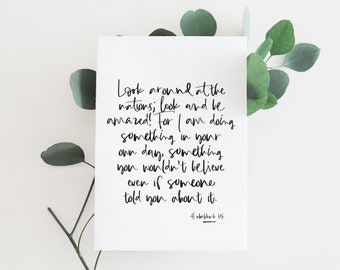 Look around at the
nations; look and be
amazed! For I am doing
something in your
own day, something
you wouldn't believe
even if someone
told you about it.
Habakkuk 1:5